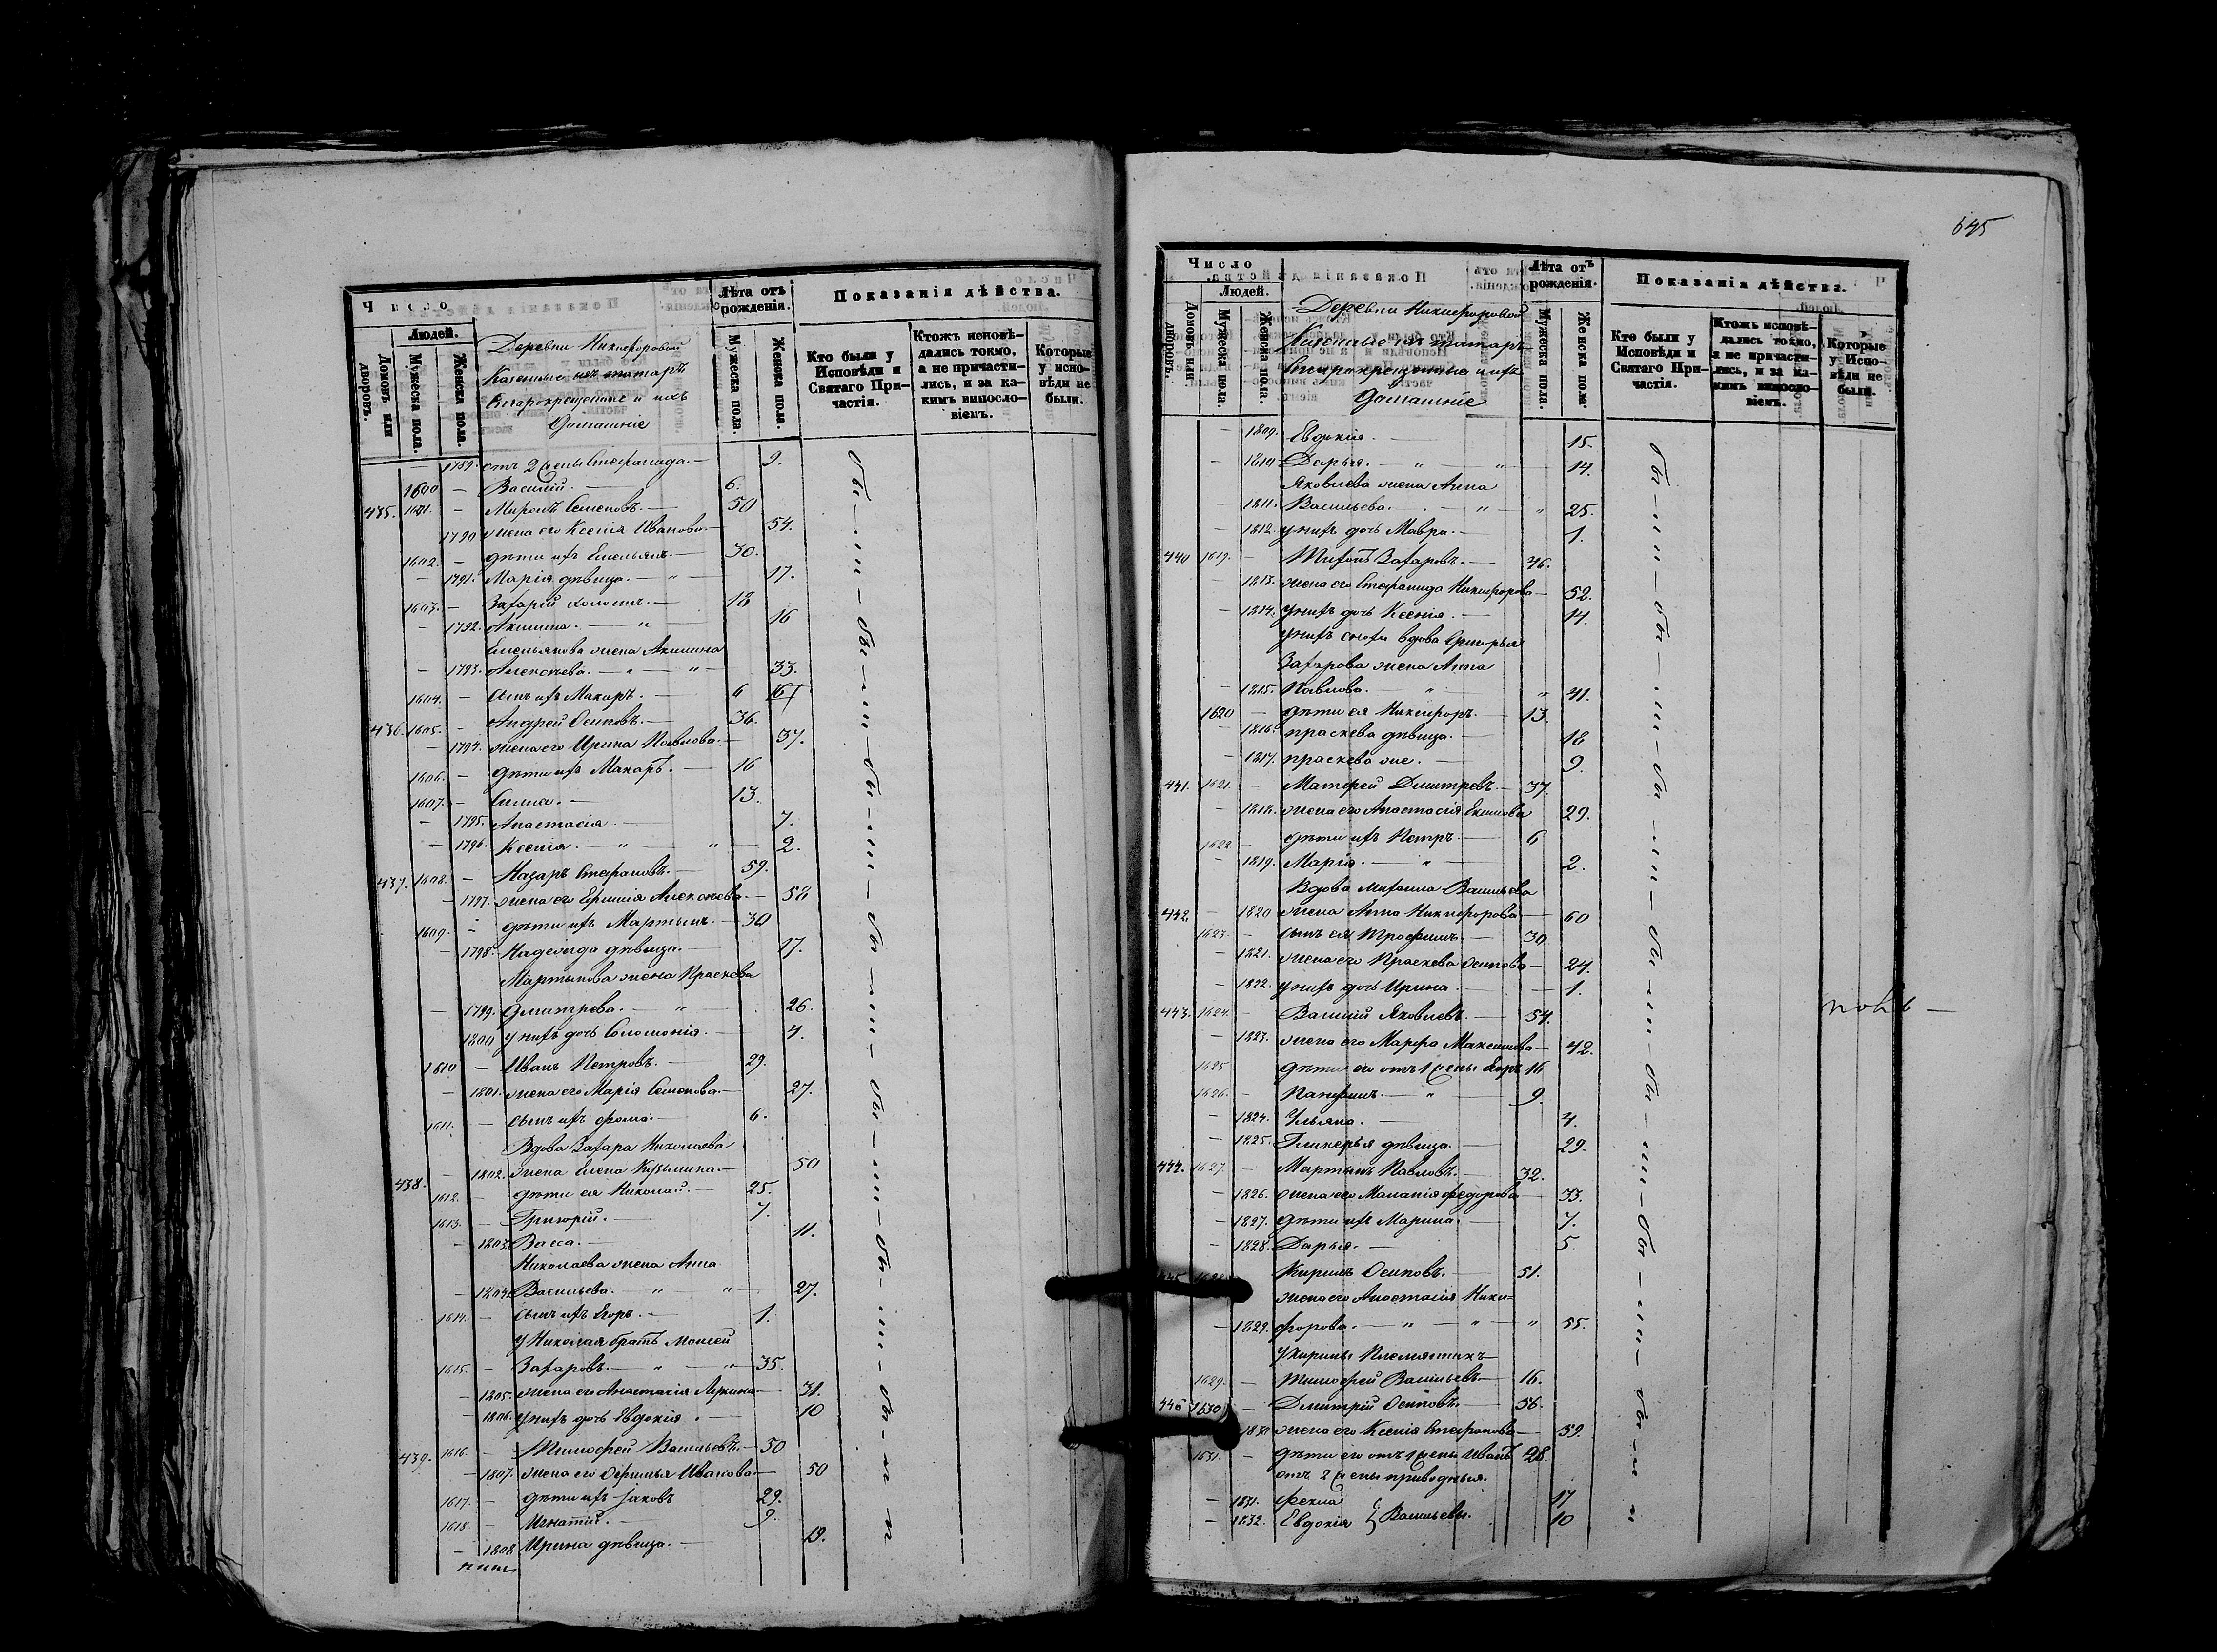 Число
Людей.
Домовъ или дворовъ.
Мужеска пола.
Женска пола.
Деревни Никифоровой
Казенные изъ татаръ
Старокрещеные и ихъ
Домашніе
Лѣта отъ рожденія.
Мужеска пола.
Женска пола.
Показанія дѣйства.
Кто были у Исповѣди и Святаго Причастія.
Ктожъ исповѣдались токмо, а не причастились, и за какимъ винословіемъ.
Которые у исповѣди не были.
1789. отъ 2 жены Стефанида. — 9.
1600 — Василій. — 6.
435. 1601. — Миронъ Семеновъ. — 50
1790 жена его Ксенія Иванова — 54.
1602. — дѣти ихъ Емельянъ. — 30.
— 1791. Марія дѣвица. — " — 17.
1603. — Захарій холостъ. — 18
— 1792. Акилина. — " 16
Емельянова жена Акилина
— 1793. Алексѣева. — " — " — 33.
1604. — Сынъ ихъ Макаръ. — 6
436. 1605. — Андрей Осиповъ. — 36.
— 1794. жена его Ирина Павлова. — 37.
1606. — дѣти ихъ Макаръ. — 16
1607. — 13.
— 1795. Анастасія. — 7.
— 1796. Ксенія. — " — " — 2.
437. 1608. — Назаръ Стефановъ. — 59.
— 1797. жена его Алексѣева. — 58
1609. — дѣти ихъ Мартынъ. — 30
— 1798. Надежда дѣвица. — 17.
Мартынова жена Праскева
— 1799. Дмитрева. — " — 26.
1800 у нихъ дочь Соломонія. — 4.
1610 — Иванъ Петровъ. — 29.
— 1801. жена его Марія Семенова. — 27.
1611. — сынъ ихъ Фома. — 6.
Вдова Захара Николаева
438. — 1802. жена Елена Кузьмина. — 50
1612. — дѣти ея Николай. — 25.
1613. — Григорій. — 7.
— 1803. Васса. — 11.
Николаева жена Анна
— 1804. Васильева. — " — " — 27.
1614. — сынъ ихъ Егоръ. — 1.
У Николая братъ Моисей
1615. — Захаровъ. — " — " — 35.
— 1805. жена его Анастасія — 31.
— 1806. у нихъ дочь Евдокія. — 10
439. 1616. — Тимофей Васильевъ. — 50
— 1807. жена его Ефимья Иванова — 50
1617. — дѣти ихъ Іаковъ 29.
1618. — Игнатій. — 9.
— 1808 Ирина дѣвица. — 19.
бы — ли — бы — ли — бы — ли — бы — ли — бы — ли — бы — ли
645
Число
Людей.
Домовъ или дворовъ.
Мужеска пола.
Женска пола.
Деревни Никифоровой
Казенные изъ татаръ
Старокрещеные и ихъ
Домашніе
Лѣта отъ рожденія.
Мужеска пола.
Женска пола.
Показанія дѣйства.
Кто были у Исповѣди и Святаго Причастія.
Ктожъ исповѣдались токмо, а не причастились, и за какимъ винословіемъ.
Которые у Исповѣди не были.
— 1809. Евдокія. — 15.
— 1810 Дарья. — " — " — 14.
Яковлева жена Анна
— 1811. Васильева. — " — " 25.
— 1812. у нихъ дочь Мавра. — 1.
440 1619. — Захаровъ. — 46.
1813. жена его Стефанида Никифорова — 52.
— 1814. у нихъ дочь Ксенія. — 14.
у нихъ сноха вдова
Захарова жена Анна
— 1815. Павлова. — " — " 41.
1620 — дѣти ея Никифоръ. — 13.
— 1816. Праскева дѣвица. — 18
— 1817. Праскева же. — 9.
441. 1621. — Матфей Дмитревъ. — 37.
— 1818. жена его Анастасія Екимова 29.
1622. — дѣти ихъ Петръ. — 6
— 1819. Марія. — " — 2.
Вдова Михаила Васильева
442. — 1820 жена Анна Никифорова — 60
1623. — сынъ ея Трофимъ. — 30
— 1821. жена его Праскева Осипова — 24.
— 1822. у нихъ дочь Ирина. — 1.
443. 1624. — Василій Яковлевъ. — 54.
— 1823. жена его Марфа Максимова — 42.
1625 дѣти его отъ 1 жены Егоръ 16
1626. — Панфилъ. — " — 9.
— 1824. Ульяна. — 4.
— 1825. Гликерья дѣвица. — 29.
444. 1627. — Мартынъ Павловъ. — 32.
— 1826. жена его Маланія Федорова — 33.
— 1827. дѣти ихъ Марина. — 7.
— 1828. Дарья. — 5.
Кирилъ Осиповъ. — 51.
жена его Анастасія Ники=
— 1829. форова. — " — " — " 55.
У Кирилы племянникъ
1629. — Тимофей Васильевъ — 16.
446 1630 — Дмитрій Осиповъ. — 56.
1830 жена его Ксенія Стефанова — 59.
1631. — дѣти его отъ 1 жены Иванъ 28.
отъ 2 жены приводныя.
— 1831. Фекла 17
— 1832. Евдокія } Васильевы. 10
бы — ли — бы — ли — бы — ли — бы — ли — бы — ли — бы — ли